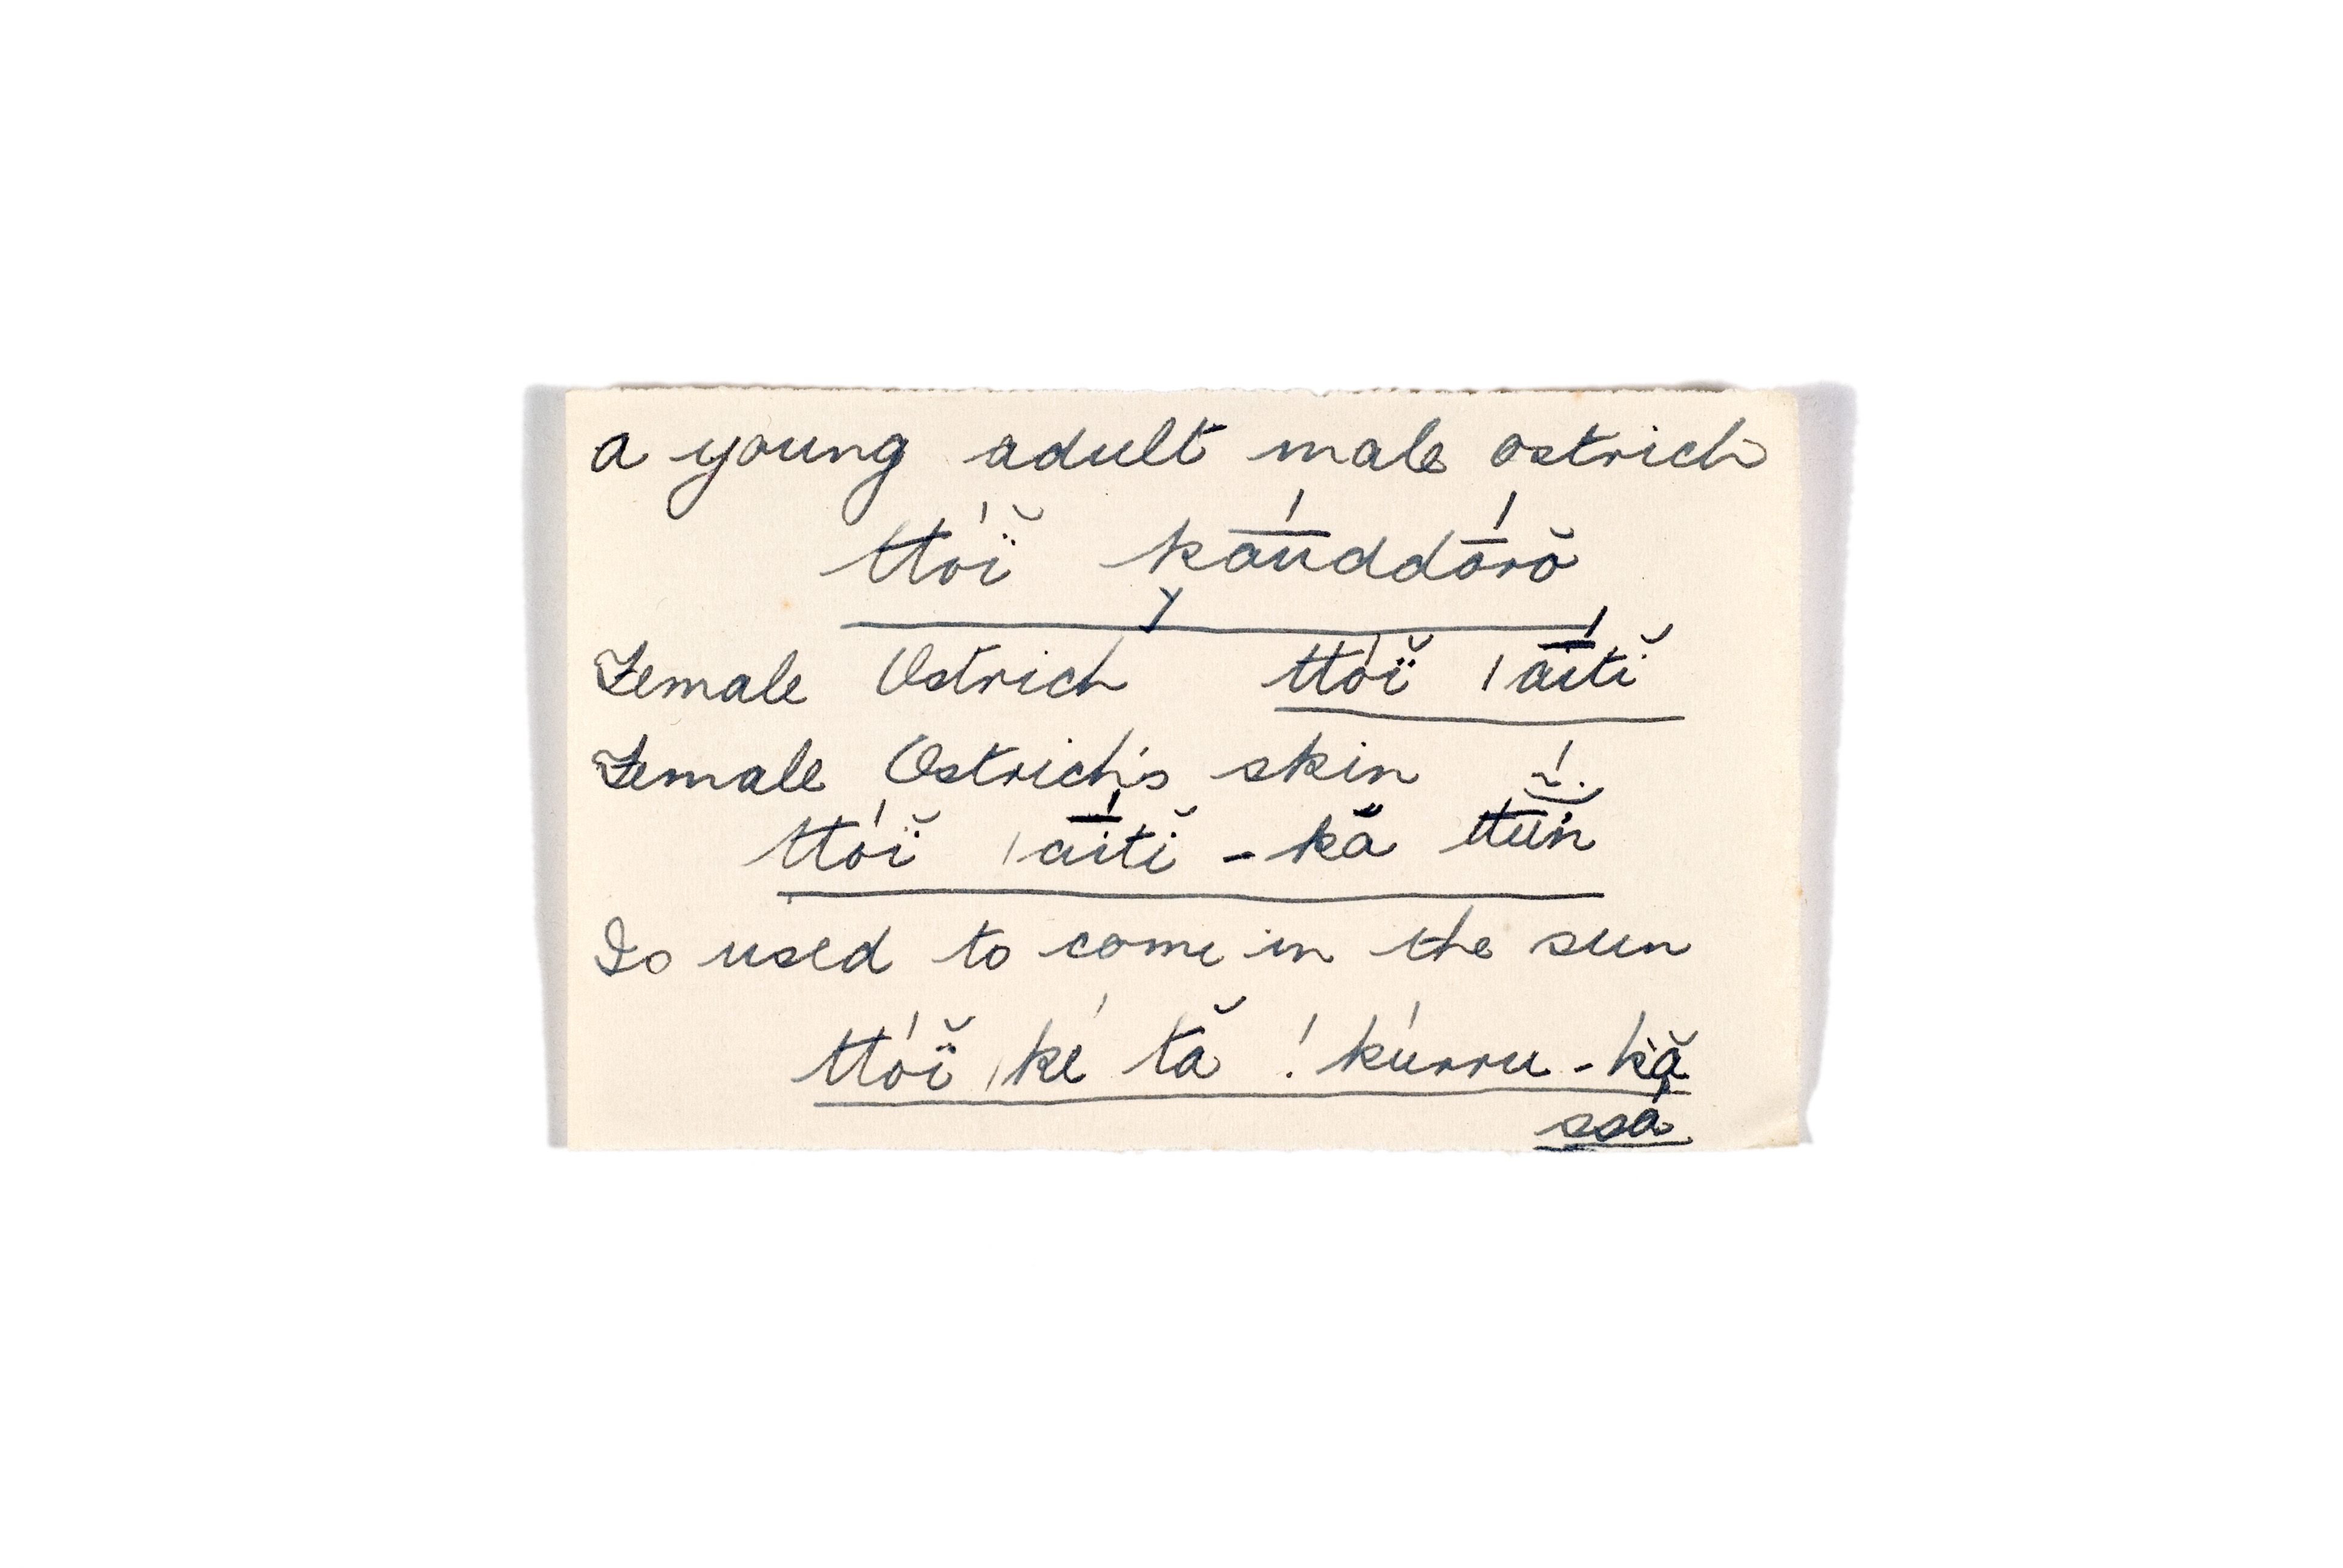 a young adult male ostrich
ttóï̆ k͞áuddṓrŏ
Female Ostrich ttóï̆ |ā́ĭtĭ
Female Ostrich's skin
ttóï̆ |ā́ĭtĭ - kă ttū́n̈
Is used to come in the sun
ttóï̆ |ké tă ! kúrru - kă
ssá